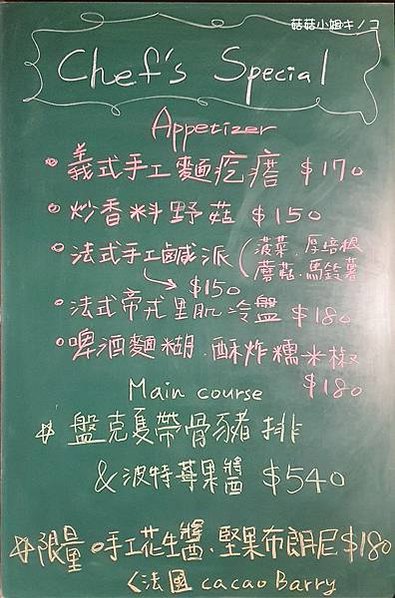 菇菇小姐キノコ
Chef's Special
Appetizer
• 義式手工麵疙瘩 $170
• 炒香料野菇 $150
• 法式手工鹹派 (菠菜、厚培根
蘑菇、馬鈴薯
→ $150
• 法式帝戎里肌冷盤 $180
• 啤酒麵糊.酥炸糯米椒
$180
Main course
# 盤克夏帶骨豬排
& 波特莓果醬 $540
# 限量 手工花生醬.堅果布朗尼 $180
<法國 cacao Barry